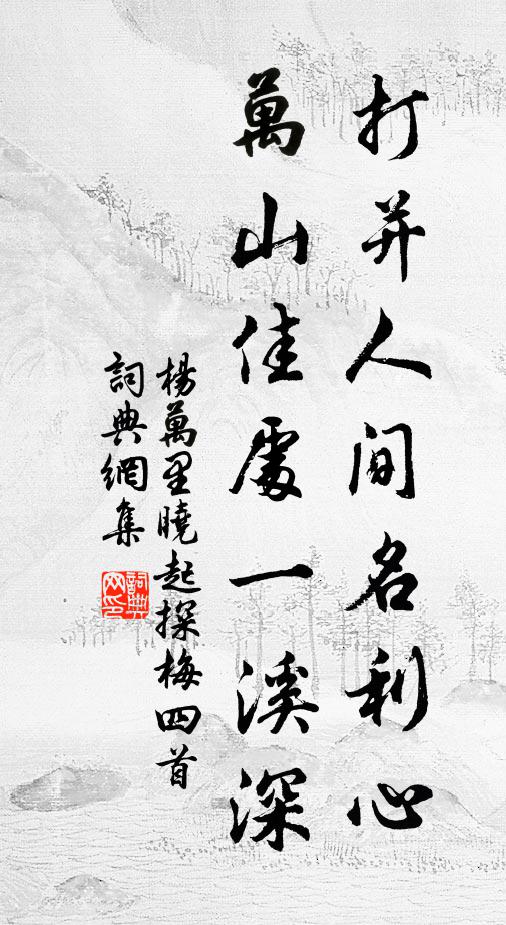 打并人间名利心
萬山佳處一溪深
楊萬里曉起探梅四首
詞典網集
詞典網印